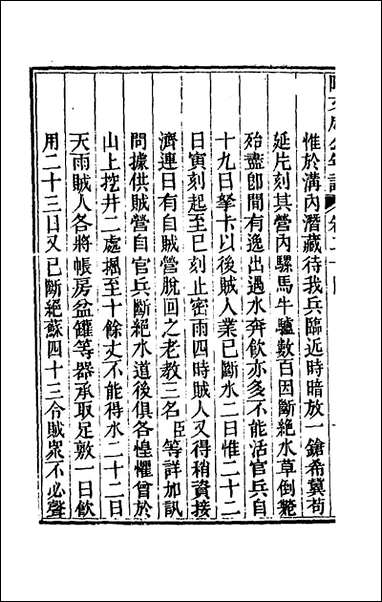 惟於溝內潛藏待我兵臨近時暗放一鎗希冀苟
延片刻其營內騾馬牛驢數百因斷絕水草倒斃
殆盡卽間有逸出遇水奔飲亦多不能活官兵自
十九日拏卡以後賊人業已斷水二日惟二十二
日寅刻起至巳刻止密雨四時賊人又得稍資接
濟連日有自賊營脫回之老教三名臣等詳加訊
問據供賊營自官兵斷絕水道後俱各惶懼曾於
山上挖井二處掘至十餘丈不能得水二十二日
天雨賊人各將帳房盆鑵等器承取足敷一日飲
用二十三日又已斷絕蘇四十三令賊衆不必聲